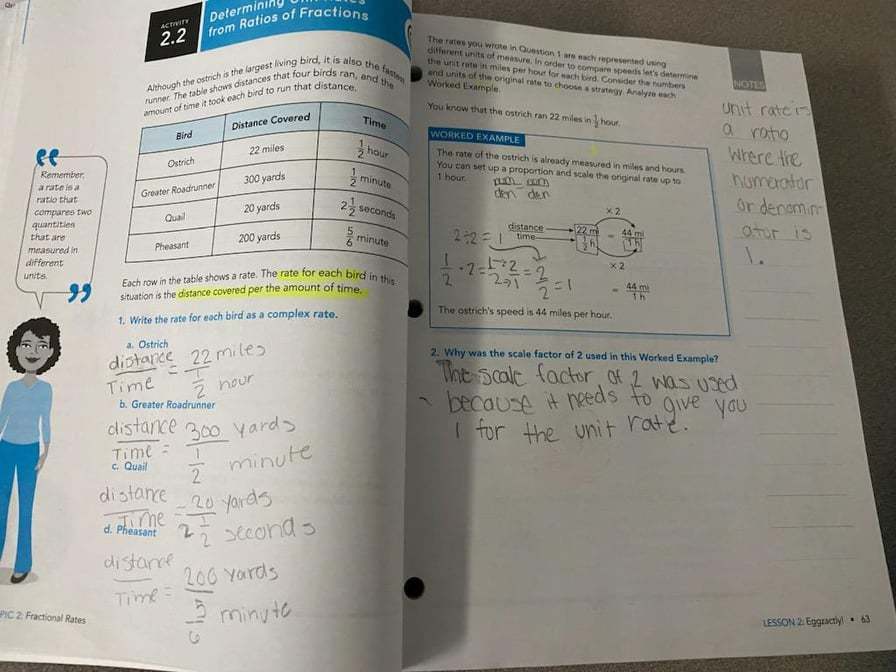 ACTIVITY
2.2
Determining Unit Rates
from Ratios of Fractions
Although the ostrich is the largest living bird, it is also the fastest
runner. The table shows distances that four birds ran, and the
amount of time it took each bird to run that distance.
Bird Distance Covered Time
Ostrich 22 miles 1/2 hour
Greater Roadrunner 300 yards 1/2 minute
Quail 20 yards 2 1/2 seconds
Pheasant 200 yards 5/6 minute
Remember,
a rate is a
ratio that
compares two
quantities
that are
measured in
different
units.
Each row in the table shows a rate. The rate for each bird in this
situation is the distance covered per the amount of time.
1. Write the rate for each bird as a complex rate.
a. Ostrich
distance / Time = 22 miles / 1/2 hour
b. Greater Roadrunner
distance / Time = 300 yards / 1/2 minute
c. Quail
distance / Time = 20 yards / 2 1/2 seconds
d. Pheasant
distance / Time = 200 yards / 5/6 minute
PIC 2: Fractional Rates
The rates you wrote in Question 1 are each represented using
different units of measure. In order to compare speeds let's determine
the unit rate in miles per hour for each bird. Consider the numbers
and units of the original rate to choose a strategy. Analyze each
Worked Example.
You know that the ostrich ran 22 miles in 1/2 hour.
WORKED EXAMPLE
The rate of the ostrich is already measured in miles and hours.
You can set up a proportion and scale the original rate up to
1 hour.
num / den num / den
× 2
2÷2=1
distance / time 22 mi / 1/2 h = 44 mi / 1 h
× 2
1/2 · 2 = 1→2 / 2→1 = 2/2 = 1
= 44 mi / 1 h
The ostrich's speed is 44 miles per hour.
2. Why was the scale factor of 2 used in this Worked Example?
The scale factor of 2 was used
because it needs to give you
1 for the unit rate.
NOTES
unit rate is
a ratio
where the
numerator
or denomin
ator is
1.
LESSON 2: Eggzactly! • 63